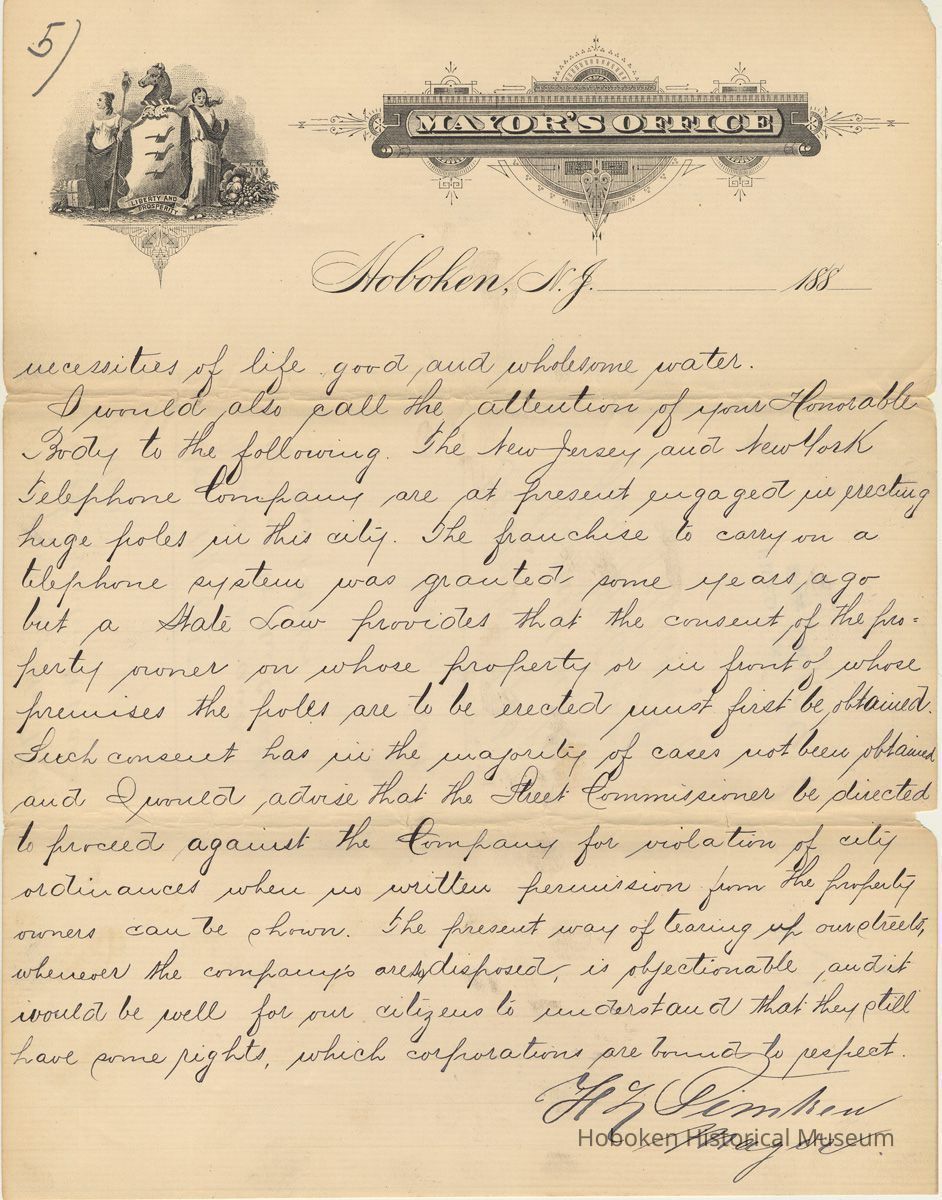 5)
LIBERTY AND
PROSPERITY
MAYOR'S OFFICE
Hoboken, N.J. 188
necessities of life good and wholesome water.
I would also call the attention of your Honorable
Body to the following. The New Jersey and New York
Telephone Company are at present engaged in erecting
huge poles in this city. The franchise to carry on a
telephone system was granted some years ago
but a State Law provides that the consent of the pro=
perty owner on whose property or in front of whose
premises the poles are to be erected must first be obtained.
Such consent has in the majority of cases not been obtained
and I would advise that the Street Commissioner be directed
to proceed against the Company for violation of city
ordinances when no written permission from the property
owners can be shown. The present way of tearing up our streets,
whenever the company's are disposed, is objectionable, and it
would be well for our citizens to understand that they still
have some rights, which corporations are bound to respect.
H L Timken
Mayor.
Hoboken Historical Museum